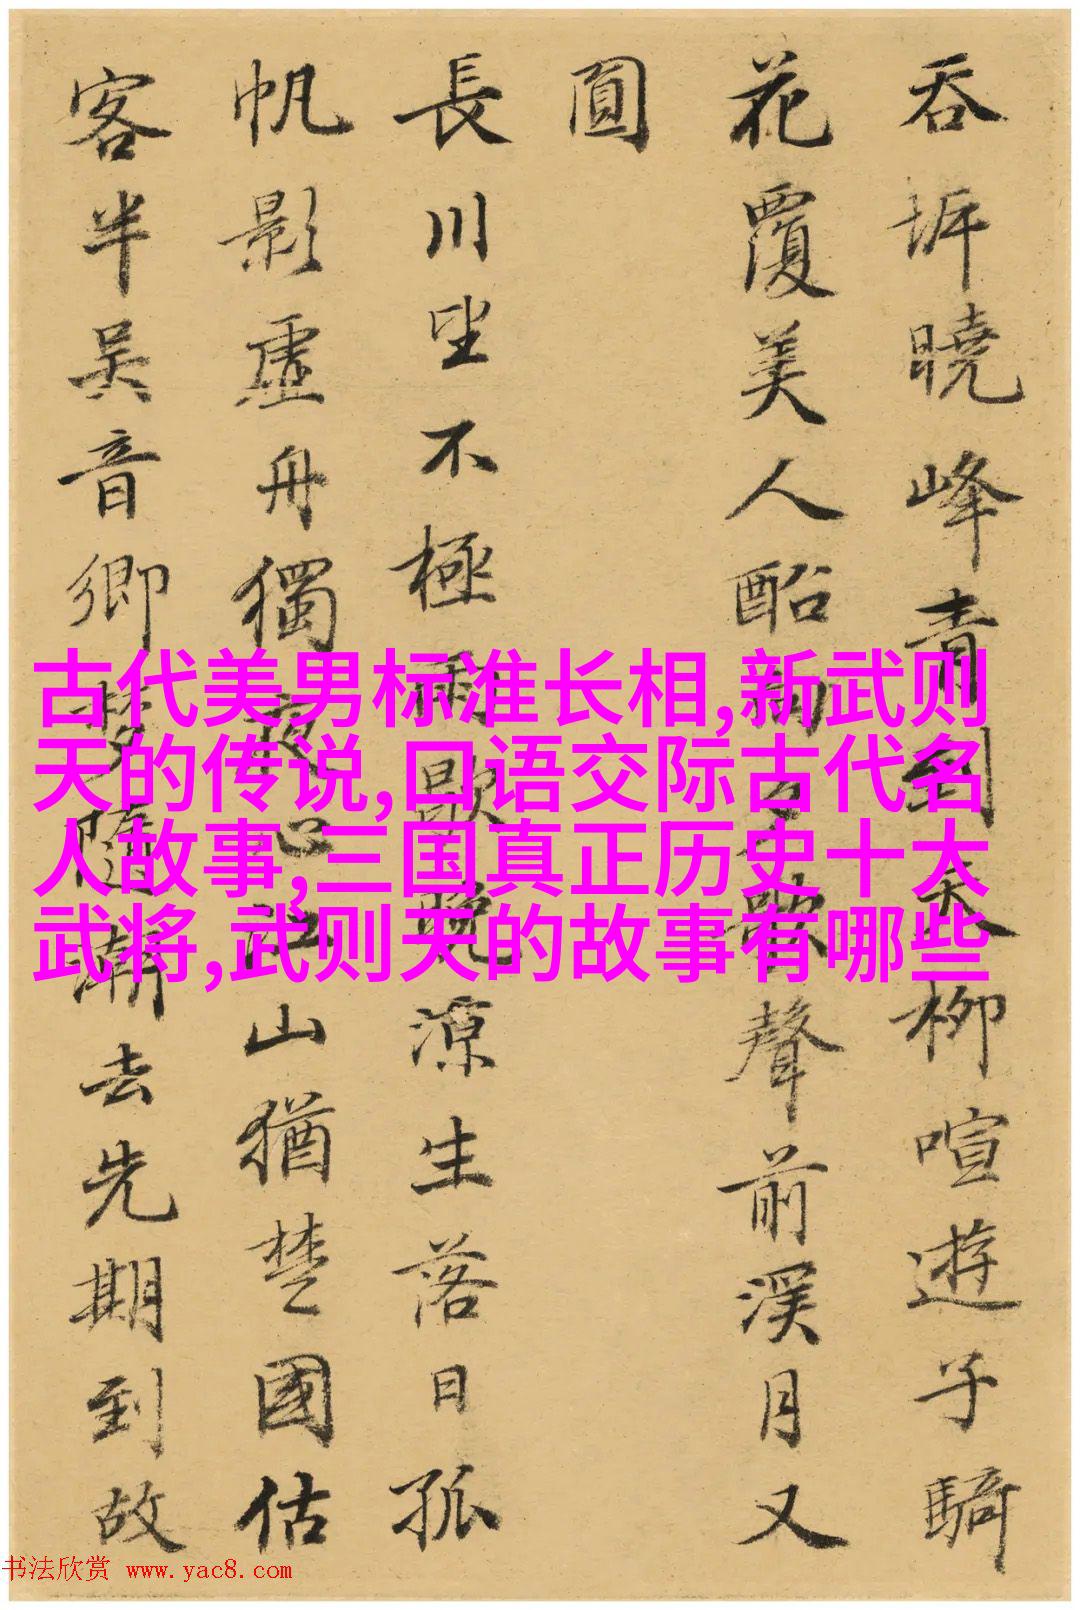 吞坼曉峰青到天柳喧遊子騎
花覆美人酩歌聲前溪月又
圓
長川坐不極雨歇晚凉生落日孤
帆影虛舟獨夜心江山猶楚國估
客半吴音鄉夢随潮去先期到故
古代美男标准长相,新武则
天的传说,口语交际古代名
人故事,三国真正历史十大
武将,武则天的故事有哪些
书法欣赏 www.yac8.com